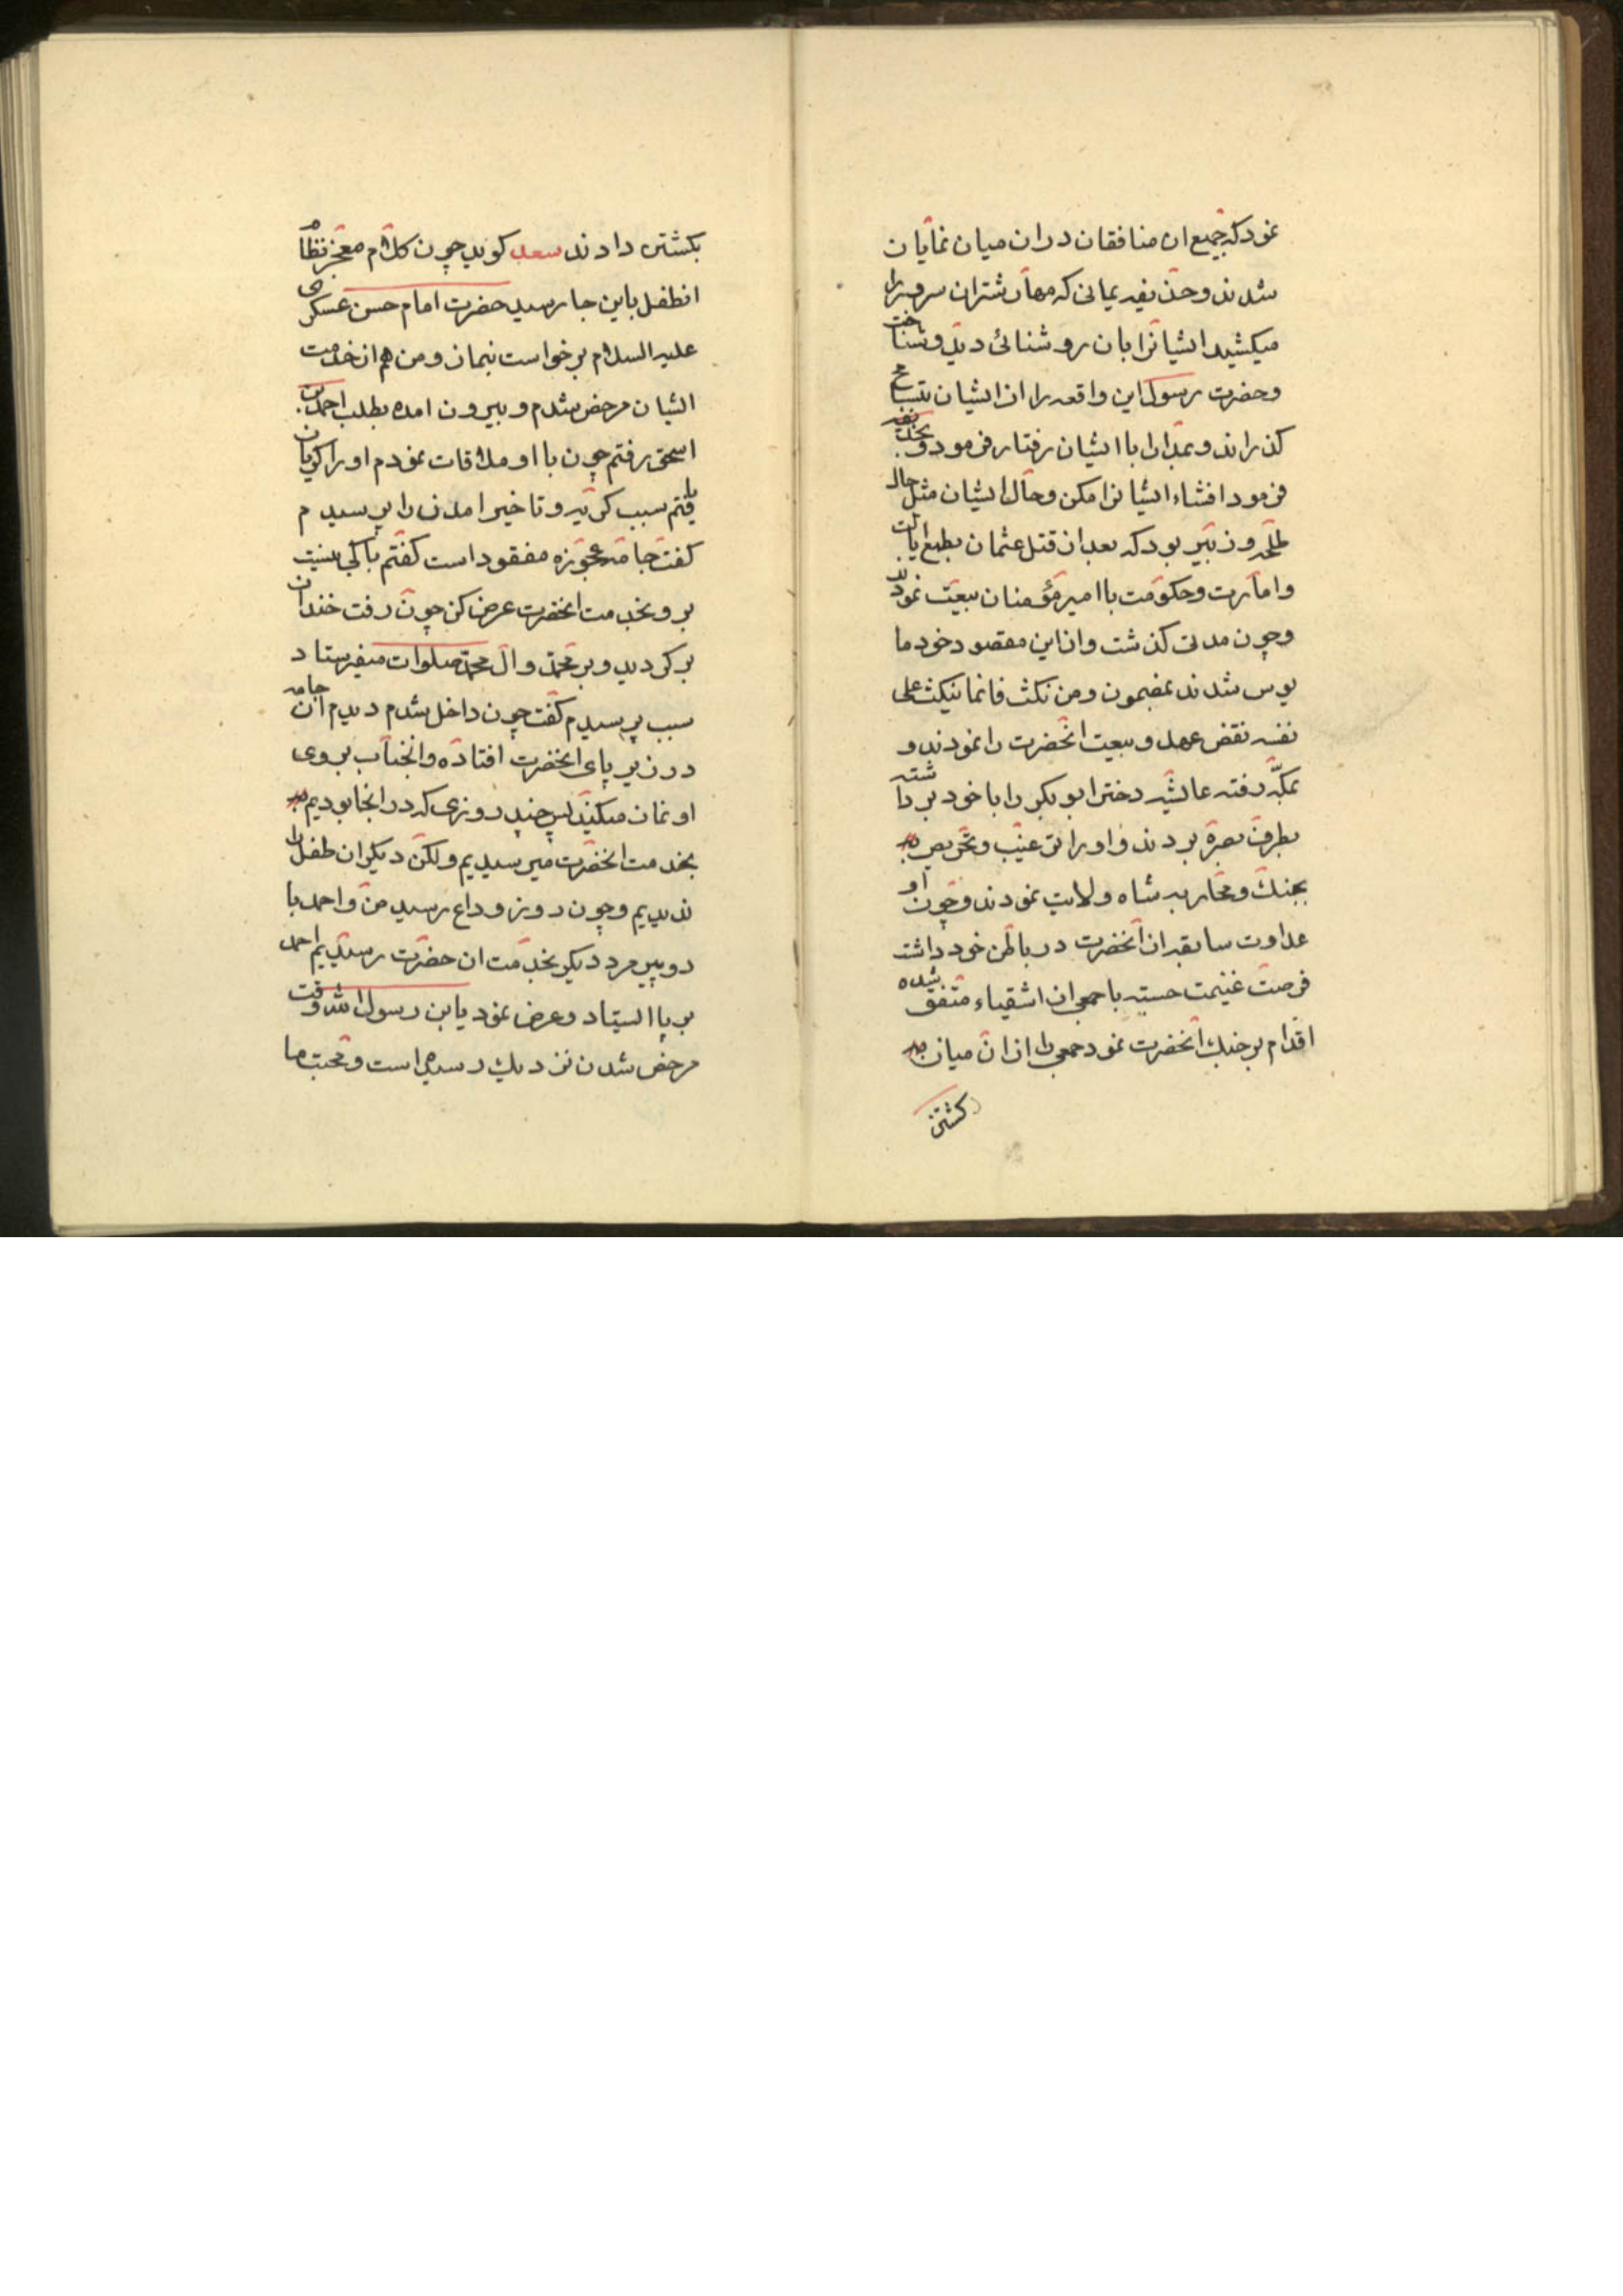 نمود که جمیع ان منافقان در ان میان نمایان
شدند و حذیفه یمانی که مهار شتران سرور را
میکشید ایشانرا بان روشنائی دید و شناخت
و حضرت رسول این واقعه را از ایشان بتسامح
کذرانید و بمدارا با ایشان رفتار فرمود و بحذیفه
فرمود افشاء ایشانرا مکن و حال ایشان مثل حال
طلحه و زبیر بود که بعد از قتل عثمان بطمع ایالت
و امارت و حکومت با امیر مؤمنان بیعت نمودند
و چون مدتی کذشت و از این مقصود خود ما
یوس شدند بمضمون ومن نکث فانما ینکث علی
نفسه نقض عهد و بیعت انحضرت را نمودند و
بمکه رفته عایشه دختر ابو بکر را با خود برداشته
بطرف بصره بردند و او را ترغیب و تحریص
بجنك و محاربه شاه ولایت نمودند و چون او
عداوت سابقه از انحضرت در باطن خود داشت
فرصت غنیمت جسته با جمع ان اشقیاء متفق شده
اقدام بر جنك انحضرت نمود جمعی را از ان میان
کشتن
بکشتن دادند سعد کوید چون کلام معجز نظام
انطفل باین جا رسید حضرت امام حسن عسکری
علیه السلام برخواست بنماز و من هم از خدمت
ایشان مرخص شدم و بیرون امده بطلب احمد بن
اسحق رفتم چون با او ملاقات نمودم او را کریان
یافتم سبب کریه و تاخیر امدن را پرسیدم
کفت جامه عجوزه مفقود است کفتم باکی نیست
برو بخدمت انحضرت عرض کن چون رفت خندان
بر کردید و بر محمد و ال محمد صلوات میفرستاد
سبب پرسیدم کفت چون داخل شدم دیدم ان جامه
در زیر پای انحضرت افتاده و انجناب بر روی
او نماز میکنند پس چند روزی که در انجا بودیم
بخدمت انحضرت میرسیدیم ولکن دیکر ان طفل را
ندیدیم و چون روز وداع رسید من و احمد با
دو پیر مرد دیکر بخدمت ان حضرت رسیدیم احمد
بر پا ایستاد و عرض نمود یابن رسول الله وقت
مرخص شدن نزدیك رسیده است و محبت ما